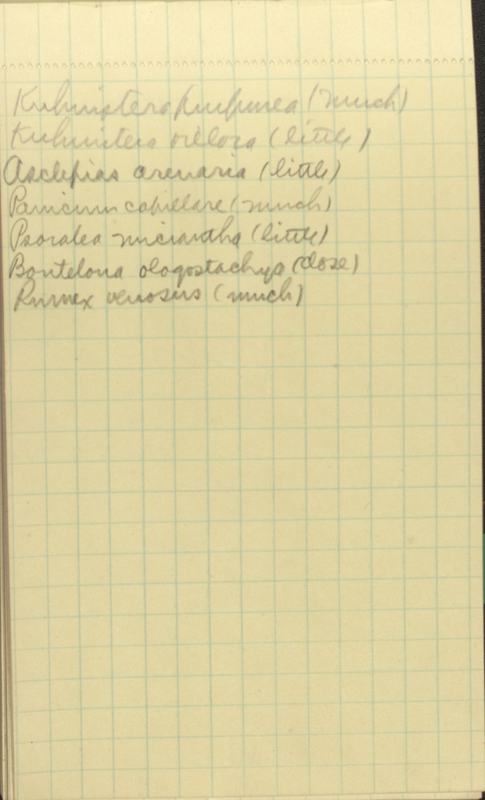 Kuhnistera purpurea (much)
Kuhnistera villosa (little)
Asclepias arenaria (little)
Panicum capillare (much)
Psoralea micrantha (little)
Boutelona ologostachya (close)
Rumex venosus (much)